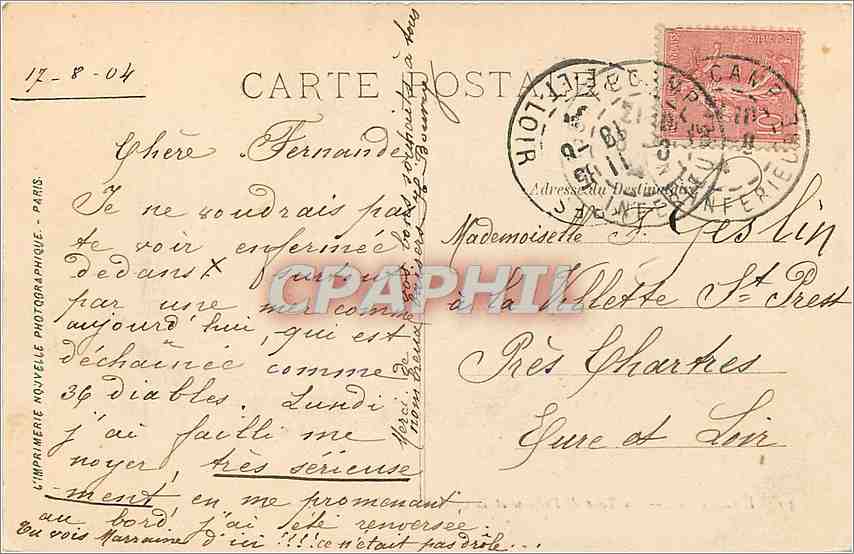 17-8-04
CARTE POSTALE
Chère Fernande
Je ne voudrais pas
te voir enfermée
dedans x surtout
par une mer comme
aujourd'hui, qui est
déchaînée comme
36 diables. Lundi
j'ai failli me
noyer, très sérieuse
-ment, en me promenant
au bord j'ai été renversée.
Tu vois Marraine d'ici !!!! ce n'était pas drôle...
Merci de vos bons souhaits à tous
nombreux baisers
Adresse du Destinataire
Mademoiselle F. Geslin
à la Villette St Prest
Près Chartres
Eure et Loir
L'IMPRIMERIE NOUVELLE PHOTOGRAPHIQUE - PARIS
CPAPHIL
ET LOIR
INFERIEURE
10